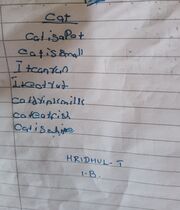 Cat
cat is a Pet
cat is small
It can run
It eat rat
cat drink milk
cat eat fish
Cat is
MRIDHUL-T
I.B.